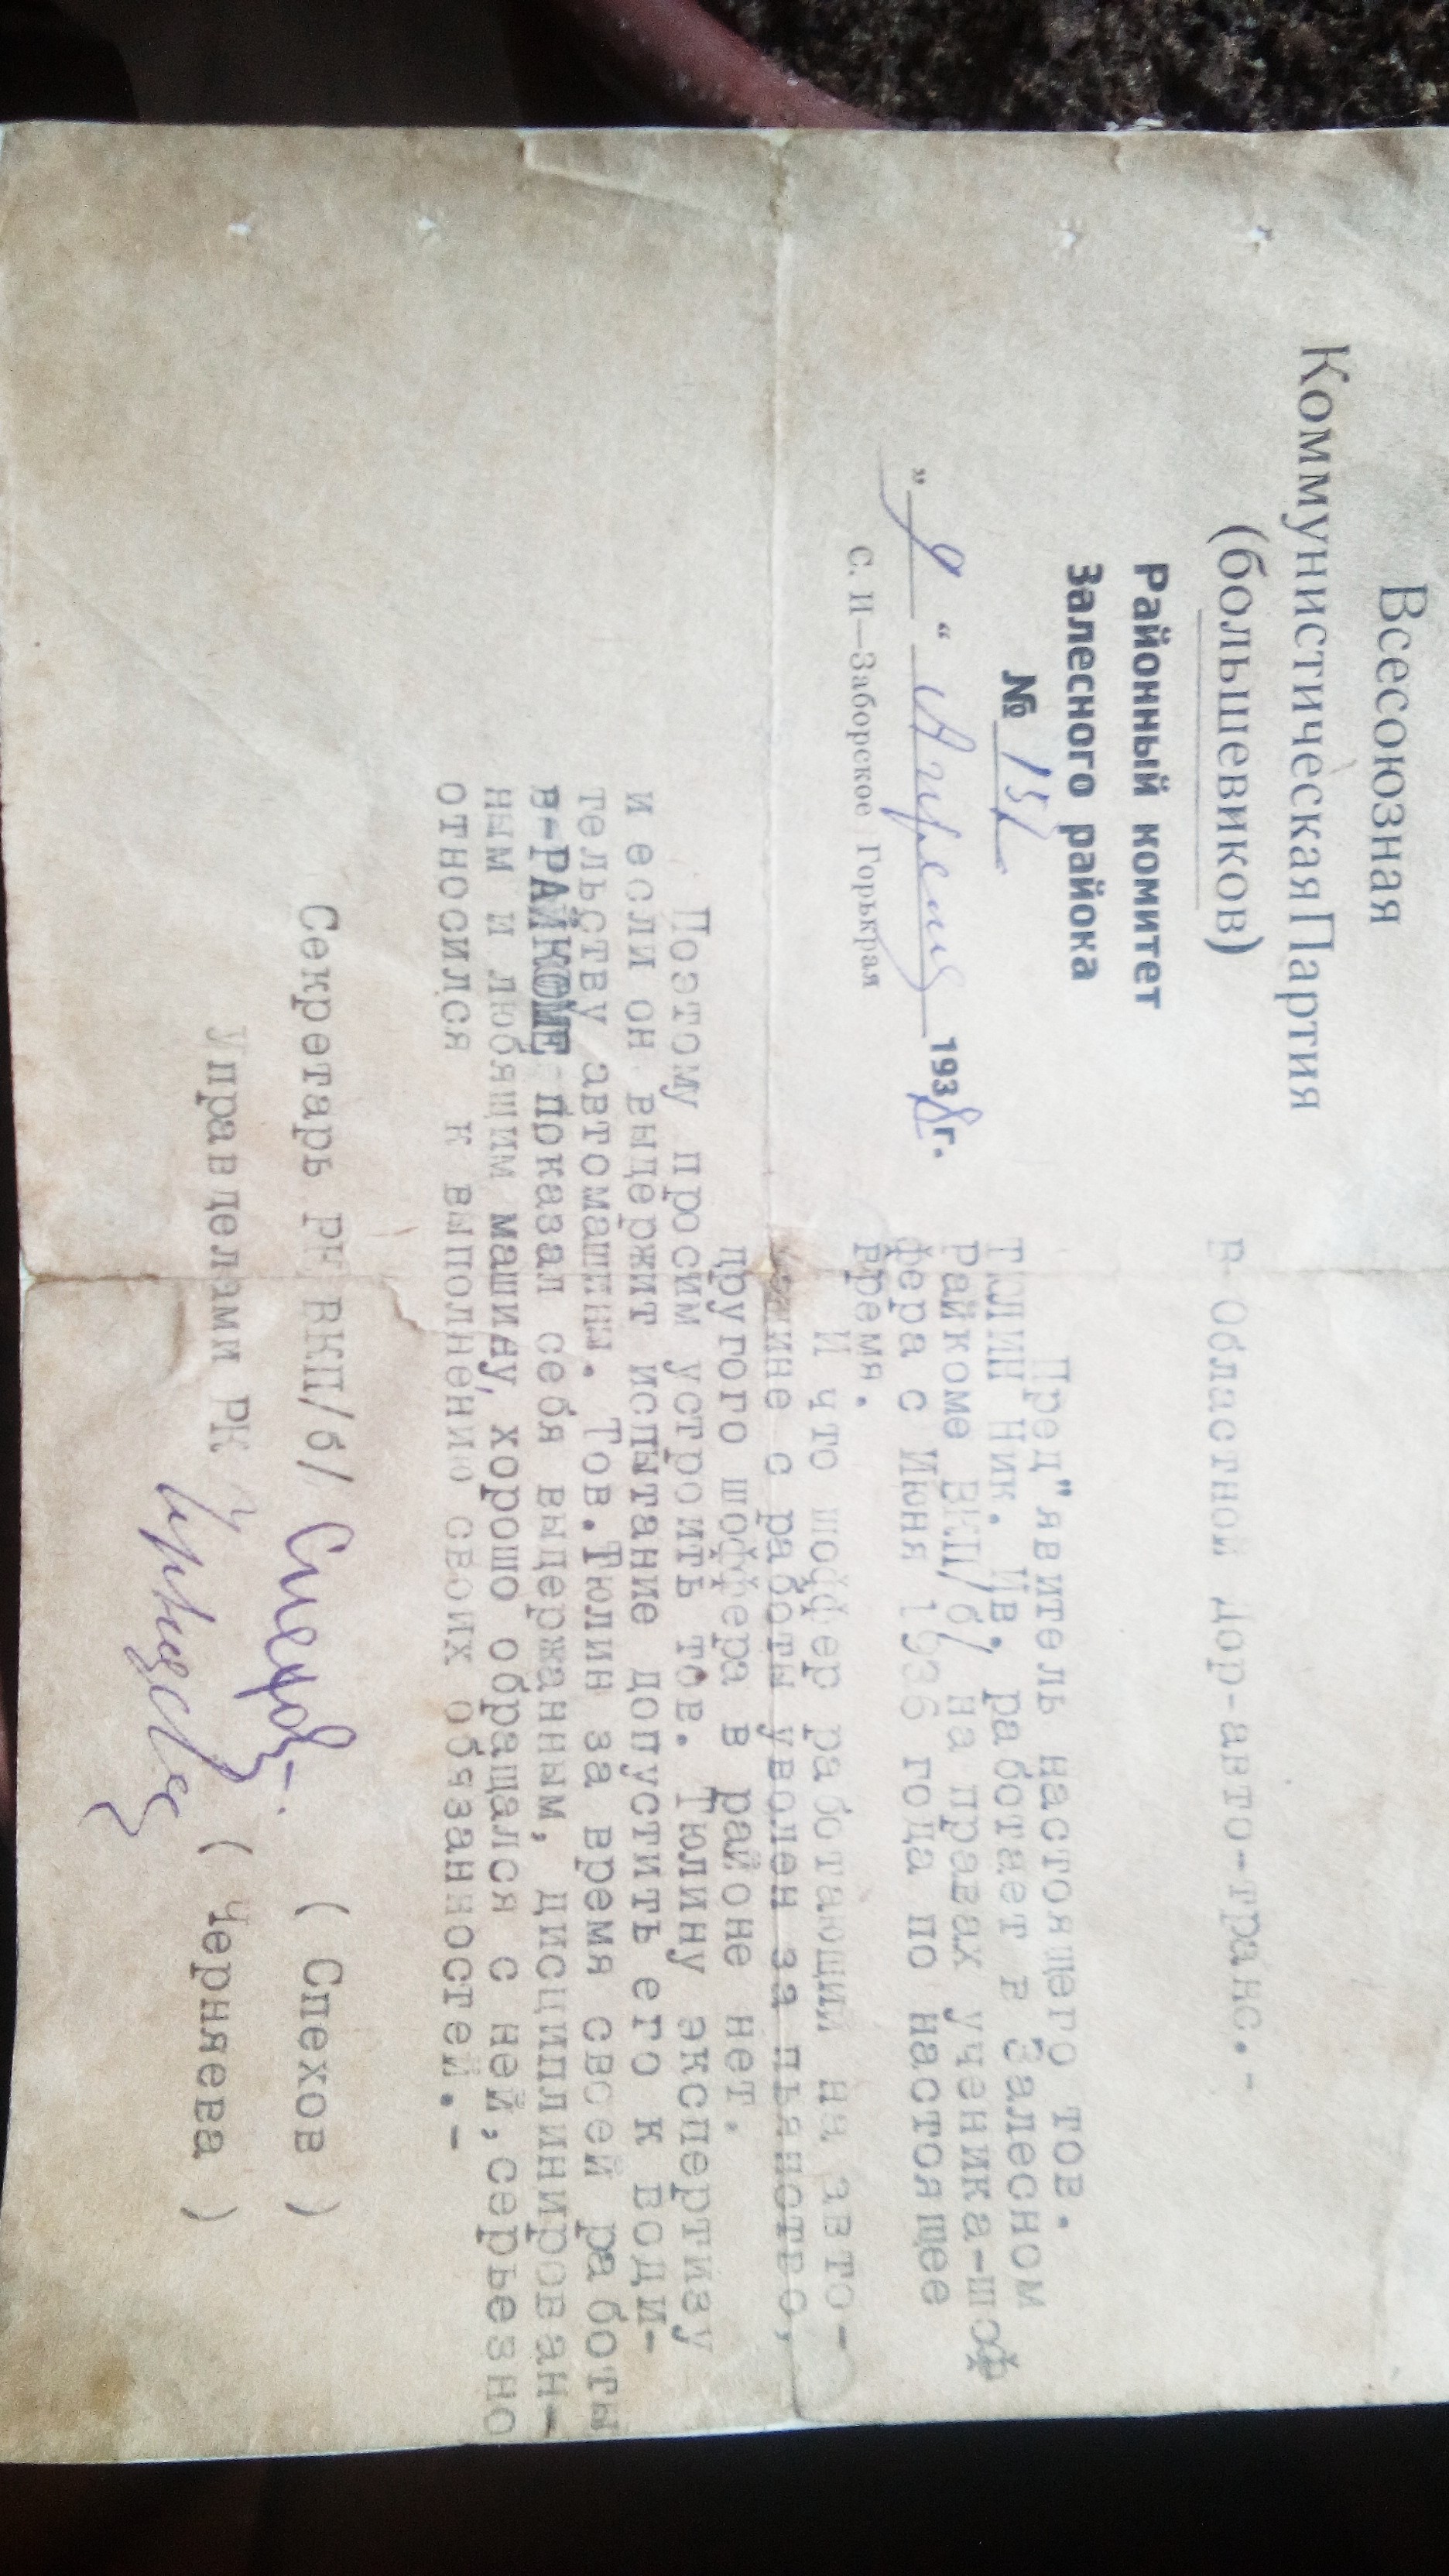 Всесоюзная
Коммунистическая Партия
(большевиков)
Районный комитет
Залесного района
№
"9" Апреля 1938 г.
С. И—Заборское Горькрая
В Областной Дор-авто-транс.-
Пред"явитель настоящего тов.
ТЮЛИН Ник. Ив. работает в Залесном
Райкоме ВКП/б/ на правах ученика-шоф
фера с Июня 1936 года по настоящее
время.
И что шоффер работающий на авто-
машине с работы уволен за пьянство,
другого шоффера в районе нет.
Поэтому просим устроить тов. Тюлину экспертизу
и если он выдержит испытание допустить его к води-
тельству автомашины. Тов.Тюлин за время своей работы
в-РАЙКОМЕ показал себя выдержанным, дисциплинирован-
ным и любящим машину, хорошо обращался с ней,серьезно
относился к выполнению своих обязанностей.-
Секретарь РК ВКП/б/ Спехов ( Спехов )
Управделами РК Черняева ( Черняева )